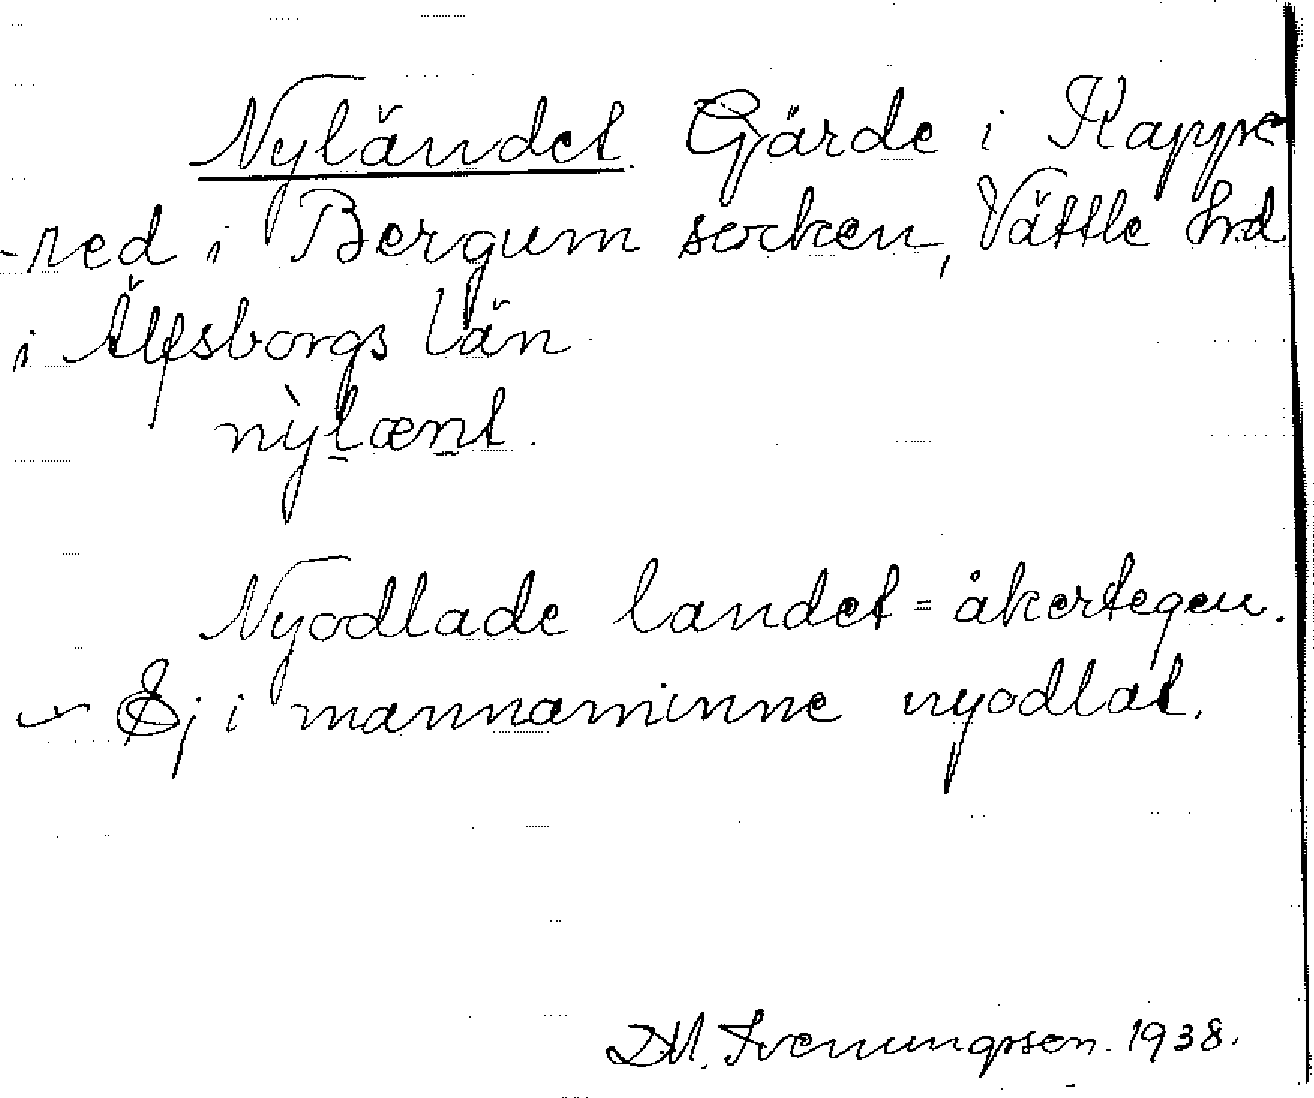 Nyländet. Gärde i Kappe
-red i Bergum socken, Vättle hrd
i Älfsborgs län
nỳlænt.
Nyodlade landet = åkertegen.
— Ej i mannaminne nyodlat.
D.M. Svenungsson. 1938.